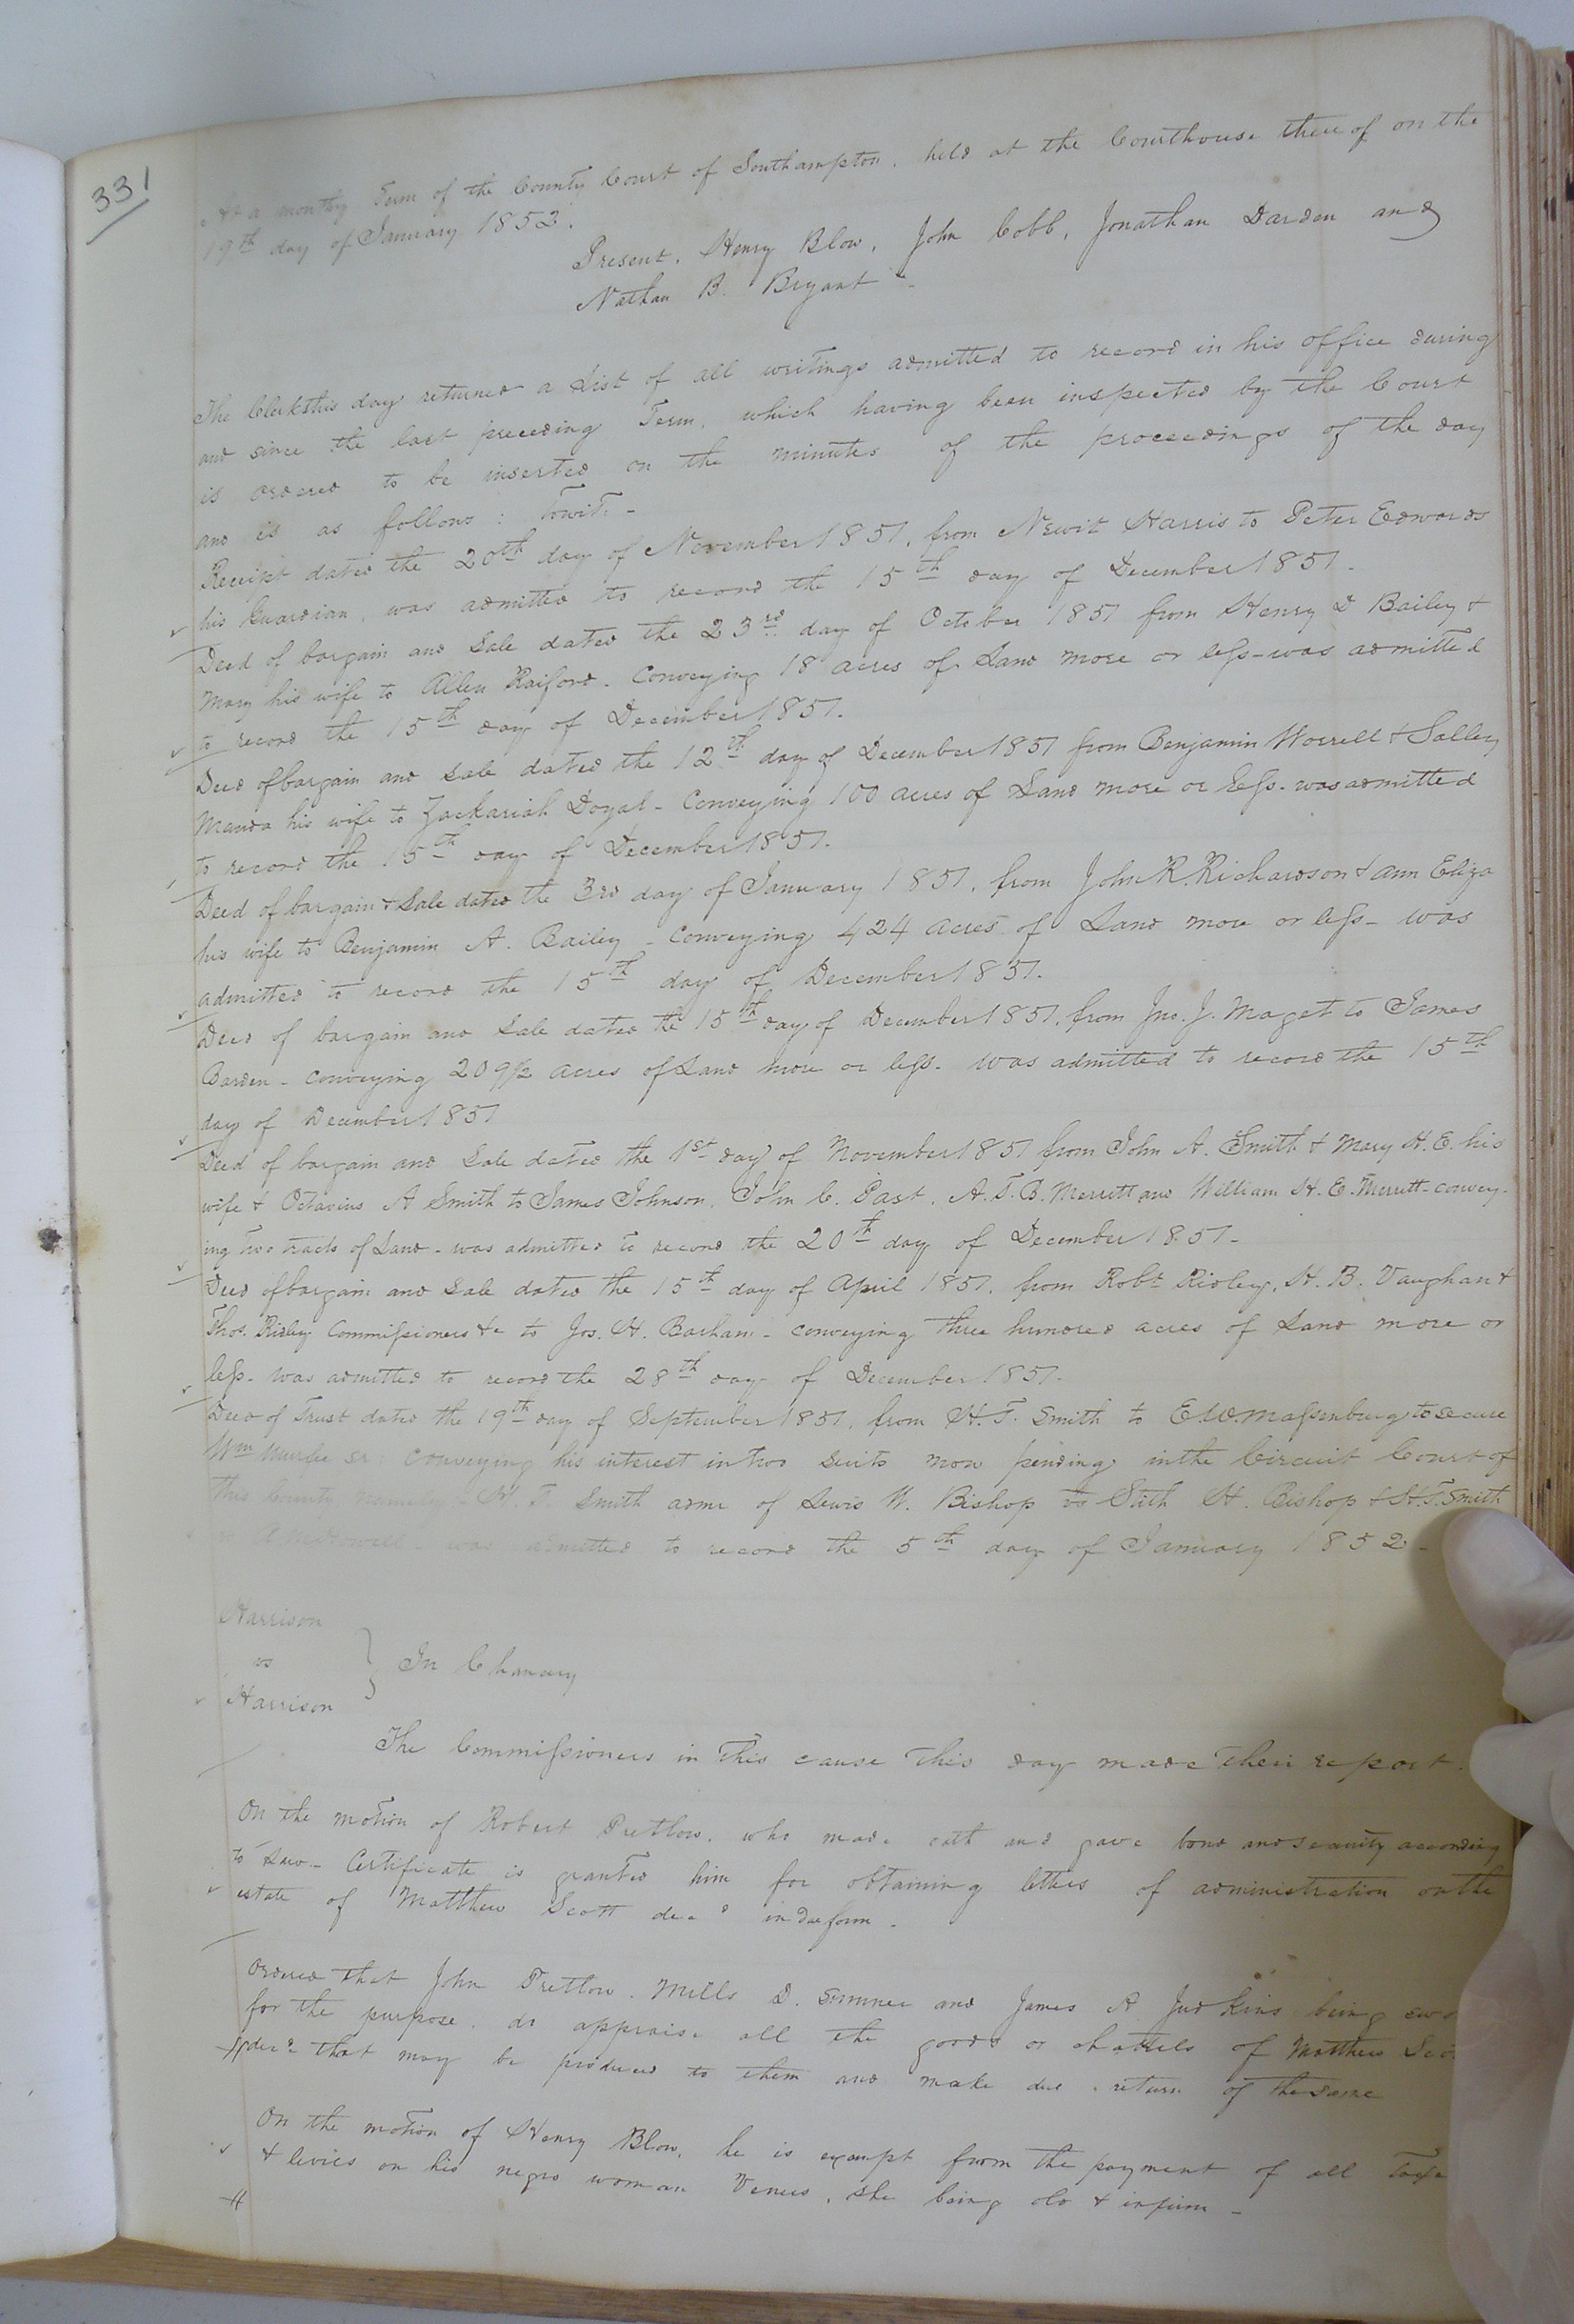 331
At a monthly Term of the County Court of Southampton, held at the Courthouse thereof on the
19th day of January 1852.
Present, Henry Blow, John Cobb, Jonathan Darden and
Nathan B. Bryant -
The Clerk this day returned a List of all writings admitted to record in his office during
and since the last preceding Term, which having been inspected by the Court
is ordered to be inserted on the minutes of the proceedings of the day
and is as follows: Towit: -
Receipt dated the 20th day of November 1851, from Newit Harris to Peter Edwards
his Guardian, was admitted to record the 15th day of December 1851.
Deed of bargain and Sale dated the 23rd day of October 1851 from Henry D Bailey &
Mary his wife to Allen Raiford - Conveying 18 acres of Land more or less - was admitted
to record the 15th day of December 1851.
Deed of bargain and sale dated the 12th day of December 1851 from Benjamin Worrell & Salley
his wife to Zackariah Doyal - Conveying 100 acres of Land more or less - was admitted
to record the 15th day of December 1851.
Deed of bargain & Sale dated the 3rd day of January 1851, from John R. Richardson & Ann Eliza
his wife to Benjamin A. Bailey - conveying 424 acres of Land more or less - was
admitted to record the 15th day of December 1851.
Deed of bargain and Sale dated the 15th day of December 1851, from Jno. J. Maget to James
Barden - conveying 209 1/2 acres of Land more or less - was admitted to record the 15th
day of December 1851
Deed of bargain and Sale dated the 1st day of November 1851 from John A. Smith & Mary H. E. his
wife & Octavius A Smith to James Johnson, John C. Past, A. T. B. Merritt and William H. E. Merritt - convey-
ing two tracts of Land - was admitted to record the 20th day of December 1851 -
Deed of bargain and Sale dated the 15th day of April 1851, from Robt Ridley, H. B. Vaughan &
Thos. Ridley Commissioners &c to Jos. H. Barham - conveying three hundred acres of Land more or
less - was admitted to record the 28th day of December 1851.
Deed of Trust dated the 19th day of September 1851, from H. T. Smith to E. W. Massenburg to secure
Wm Murfee sr: conveying his interest in two suits now pending in the Circuit Court of
this County namely H. T. Smith admr of Lewis W. Bishop vs Stith H. Bishop & H. T. Smith
was admitted to record the 5th day of January 1852 -
Harrison
vs
Harrison
In Chancery
The Commissioners in this cause this day made their report.
On the motion of Robert Pretlow, who made oath and gave bond and security according
to Law - Certificate is granted him for obtaining letters of administration on the
estate of Matthew Scott decd in due form -
Ordered that John Pretlow, Mills D. Sumner and James A Judkins being
for the purpose, do appraise all the goods or chattels of Matthew
decd that may be produced to them and make due return of the same
On the motion of Henry Blow, he is exempt from the payment of all
& levies on his negro woman Venus, she being old & infirm -